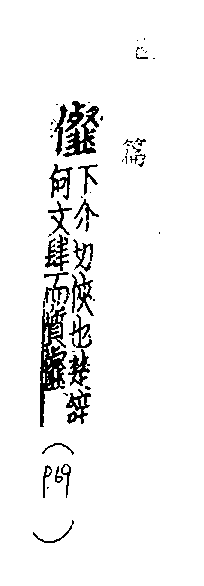 篇
下介切俠也楚辭
何文肆而質
(P.69)